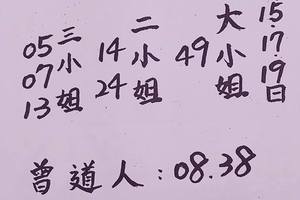 15.17.19日
大小姐 49
二小姐 14 24
三小姐 05 07 13
曾道人：08.38